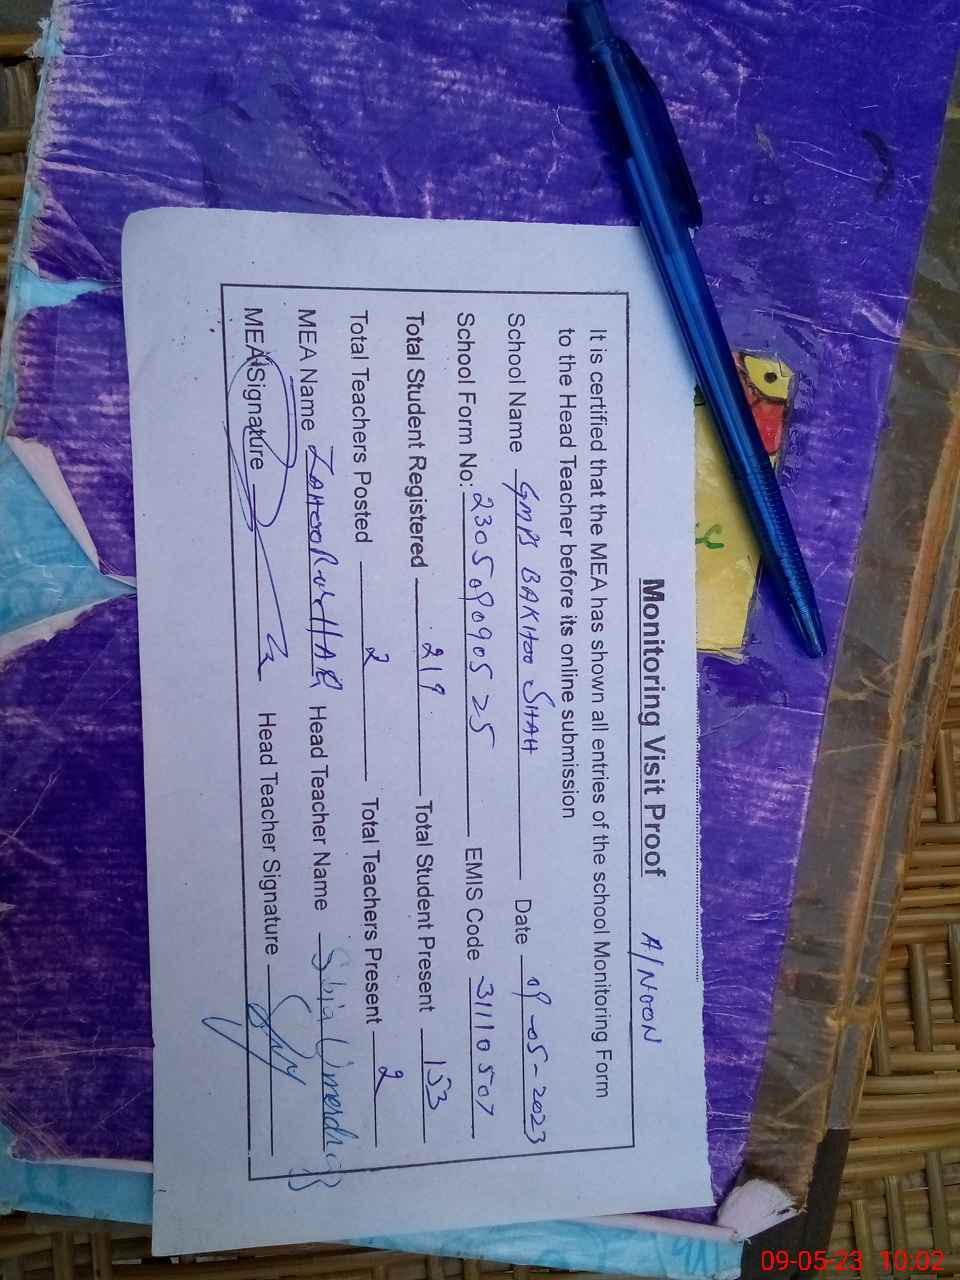 Monitoring Visit Proof A/NOON
It is certified that the MEA has shown all entries of the school Monitoring Form
to the Head Teacher before its online submission
School Name GMPS BAKHOO SHAH Date 09-05-2023
School Form No: 230509090525 EMIS Code 31110507
Total Student Registered 219 Total Student Present 153
Total Teachers Posted 2 Total Teachers Present 2
MEA Name ZAHOOR UL HAQ Head Teacher Name
MEA Signature Head Teacher Signature
09-05-23 10:02